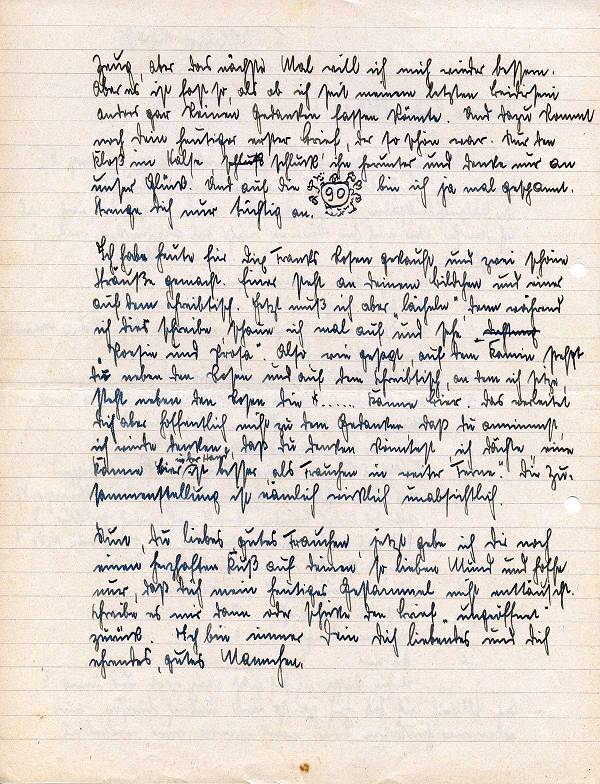 Zeug, aber das nächste Mal will ich mich wieder bessern.
Aber es ist fast so, als ob ich seit meinem letzten
anders gar keinen Gedanken fassen könnte. Und dazu kommt
noch Dein heutiger erster Brief, der so schön war. Nur den
Kloß im Halse schluck' ihn herunter und denke nur an
unser Glück. Und auf die 90 bin ich ja mal gespannt.
Strenge Dich nur tüchtig an.
Ich habe heute für Dich Rosen gekauft und zwei schöne
Sträuße gemacht. Einer steht an Deinem Bildchen und einer
auf dem Schreibtisch. Jetzt muß ich aber "lächeln" denn während
ich dies schreibe schaue ich mal auf und sehe
"Poesie und Prosa". Also wie gesagt, auf dem Kamin stehst
Du neben den Rosen und auf dem Schreibtisch, an dem ich sitze,
steht neben den Rosen die K..... Kanne Bier, das verleitet
Dich aber hoffentlich nicht zu dem Gedanken, daß Du annimmst,
ich würde denken, daß Du denken könntest, ich dächte, "eine
Kanne Bier ist besser, als Frauchen in weiter Ferne." Die Zu-
sammenstellung ist nämlich wirklich unabsichtlich.
Nun, Du liebes gutes Frauchen, jetzt gebe ich Dir noch
einen herzhaften Kuß auf Deinen so lieben Mund und hoffe
nur, daß Dich mein heutiges Gestammel nicht enttäuscht.
Schreibe es mir dann oder schicke den Brief "ungeöffnet"
zurück. Ich bin immer Dein Dich liebendes und Dich
ehrendes, gutes Männchen.